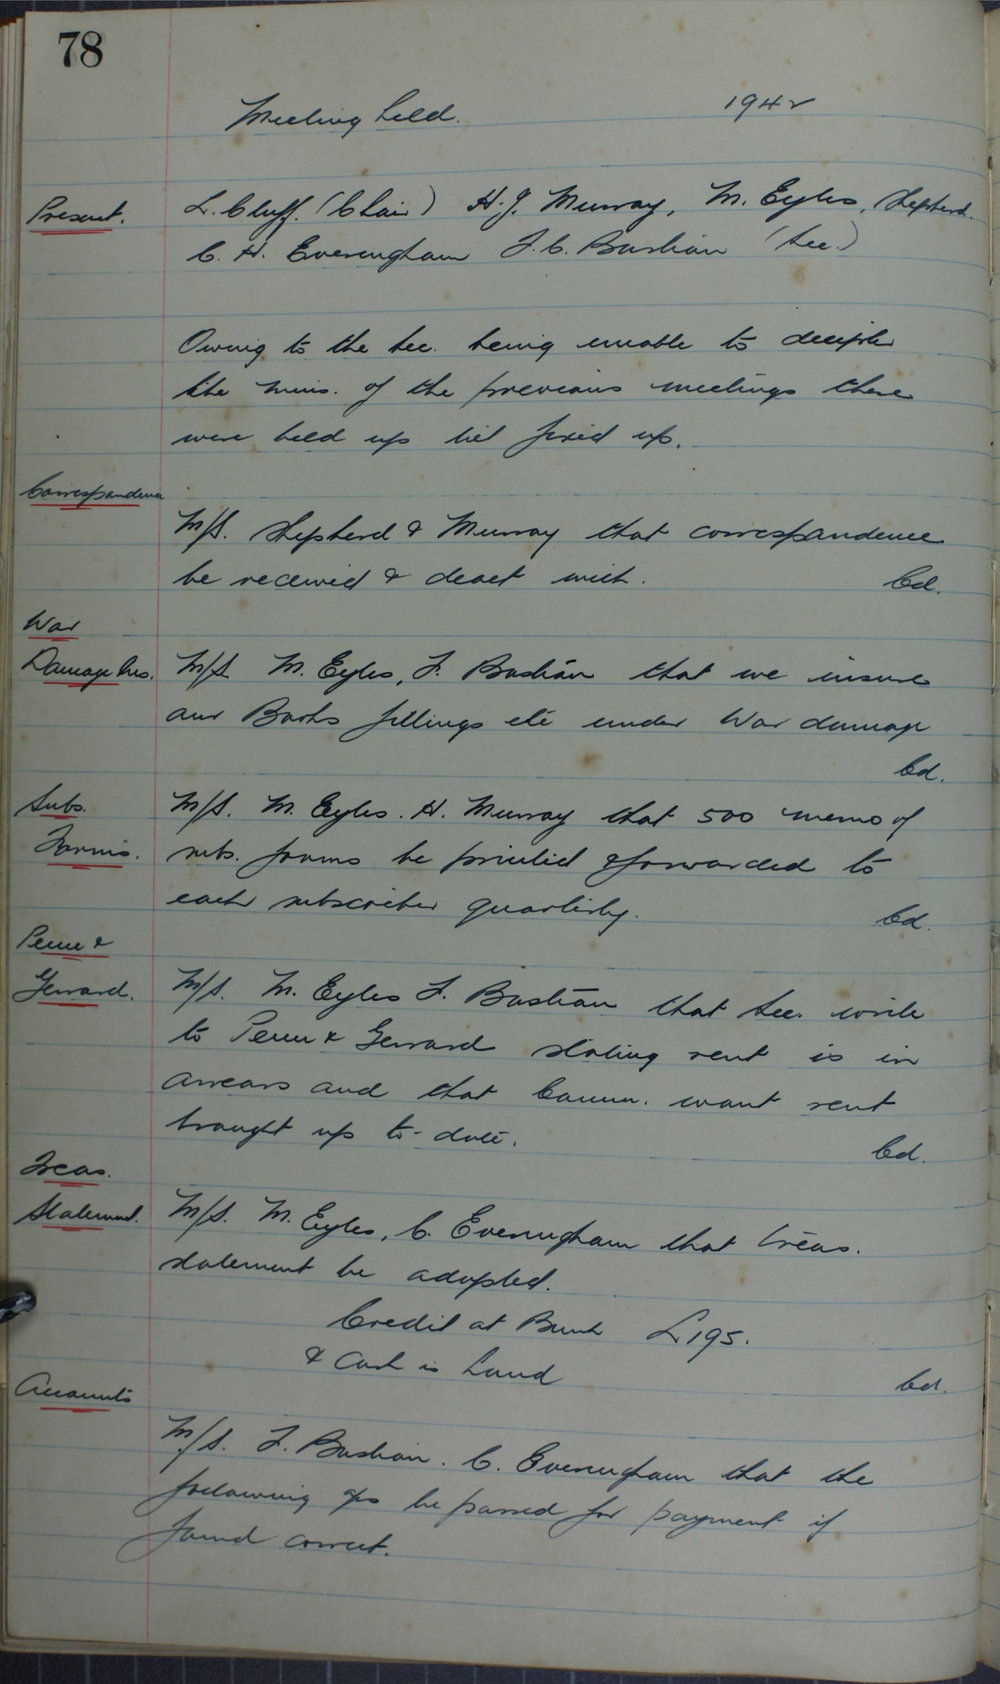 78
Meeting held. 1942
Present. L. Cluff. (Chair) H. J. Murray, M. Eyles, Shepherd.
C. H. Everingham F. C. Bastian (Sec.)
Owing to the Sec. being unable to decipher
the mins. of the previous meetings these
were held up till fixed up.
Correspondence
M/S. Shepherd & Murray that correspondence
be received & dealt with. Cd.
War
Damage Ins. M/S M. Eyles, F. Bastian that we insure
our Books fittings etc under War damage
Cd.
Subs. M/S. M. Eyles. H. Murray that 500 memo of
Forms. subs. forms be printed & forwarded to
each subscriber quarterly. Cd.
Penn &
Gerrard. M/S. M. Eyles F. Bastian that Sec. write
to Penn & Gerrard stating rent is in
arrears and that Comm. want rent
brought up to-date. Cd.
Treas.
Statement. M/S. M. Eyles, C. Everingham that Treas.
statement be adopted.
Credit at Bank £195.
& Cash in hand Cd.
Accounts
M/S. F. Bastian. C. Everingham that the
following a/cs be passed for payment if
found correct.